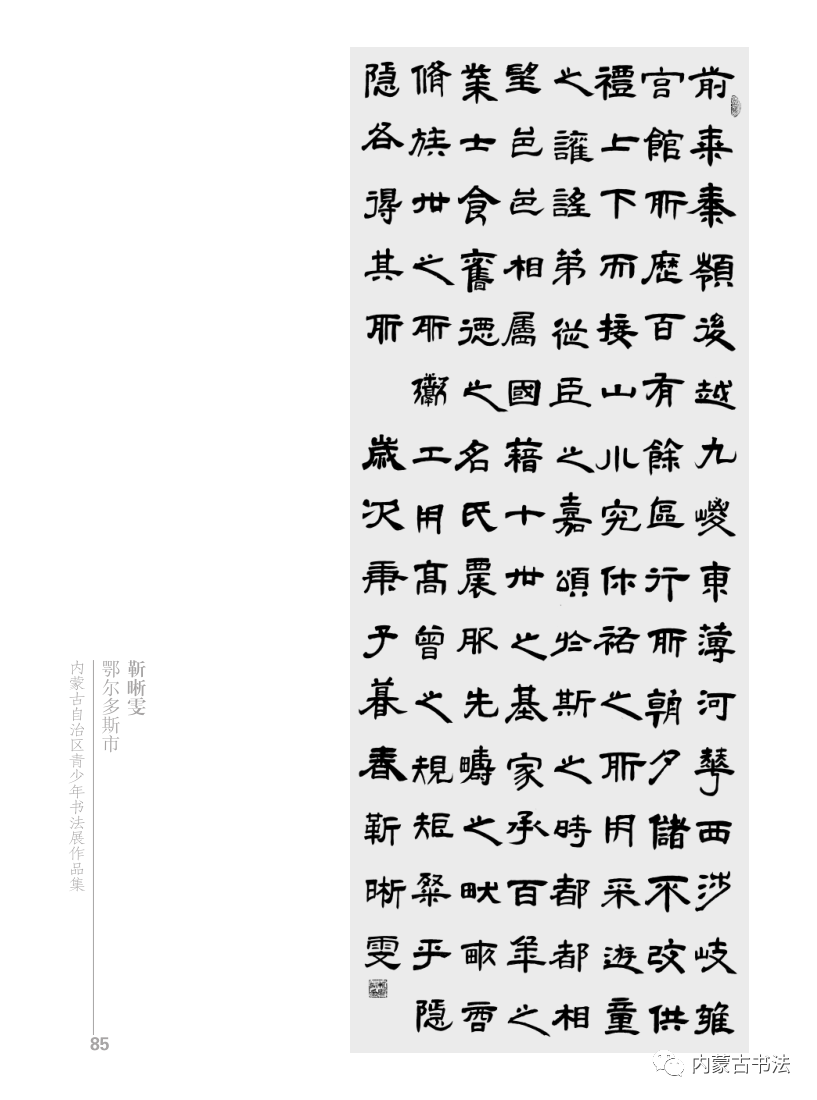 前乘秦嶺後越九嵕東薄河華西涉岐雍
宫館所歷百有餘區行所朝夕儲不改供
禮上下而接山川究休祐之所用采遊童
之讙謠第從臣之嘉頌於斯之時都都相
望邑邑相屬國藉十世之基家承百年之
業士食舊德之名氏農服先疇之畎畝商
脩族世之所鬻工用高曾之規矩粲乎隱
隱各得其所 歲次庚子暮春靳晰雯
靳晰雯
鄂尔多斯市
内蒙古自治区青少年书法展作品集
85
内蒙古书法